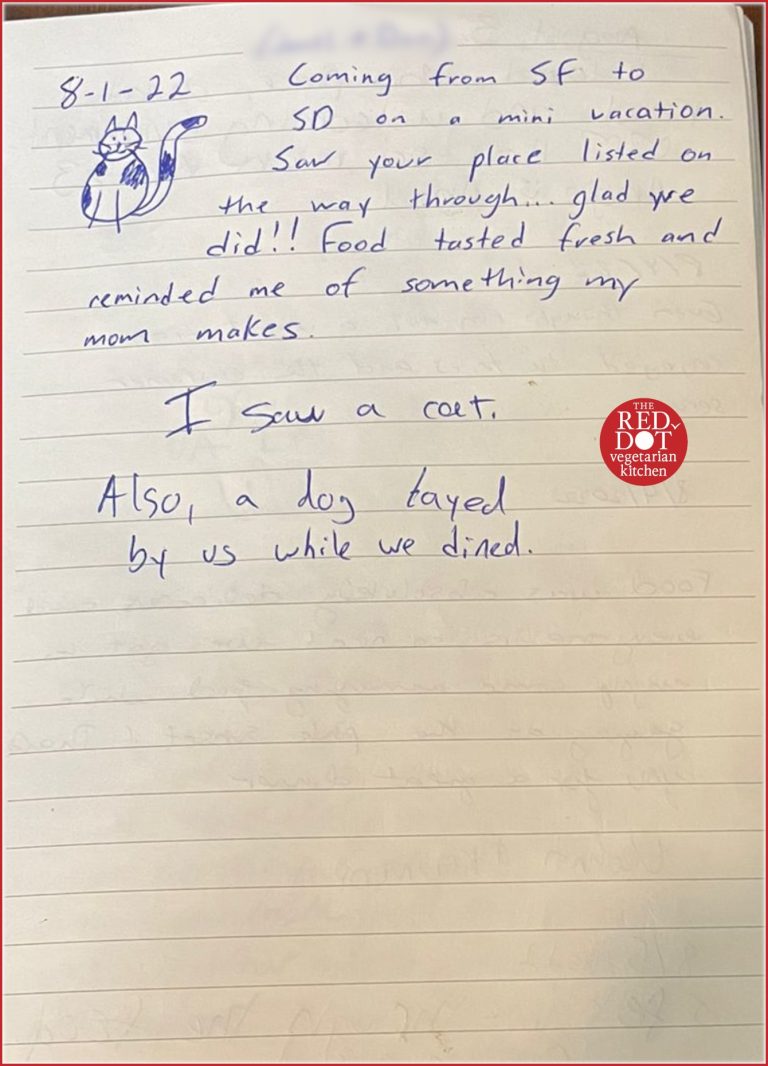 8-1-22
Coming from SF to
SD on a mini vacation.
Saw your place listed on
the way through... glad we
did!! Food tasted fresh and
reminded me of something my
mom makes.
I saw a cat.
Also, a dog layed
by us while we dined.
THE
RED
DOT
vegetarian
kitchen